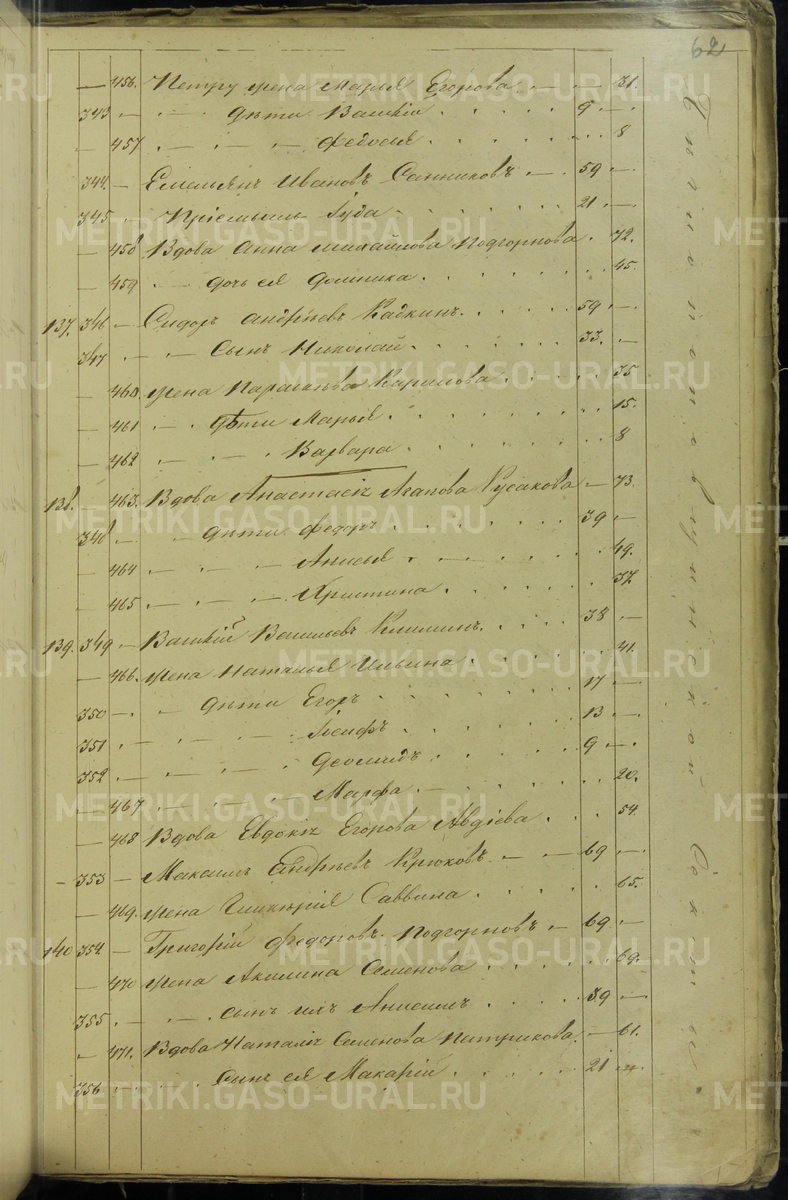 62
— 456. Петру жена Марья Егорова — 31.
343 — дѣти Василій 9 —
— 457 — Федосья 8
344. — Емельянъ Ивановъ Санниковъ — 59 —
345 Пріемышъ Іуда 21 —
— 458 Вдова Анна Михайлова Подгорнова 72.
— 459 дочь ея Домника 45.
137. 346 — Сидоръ Андрѣевъ Кадкинъ 59 —
347 Сынъ Николай 33. —
— 460 жена Парасковья Карпилова 35
— 461 дѣти Марья 15.
— 462 Варвара 8
138. 463. Вдова Анастасія Агапова Русакова — 73.
348 — дѣти Федоръ 39 —
— 464 — Анисья 49.
— 465 — Христина 37.
139. 349 — Василій Васильевъ Климинъ 38 —
— 466. жена Наталья Ильина 41.
350 — дѣти Егоръ 17 —
351 — Іосифъ 13 —
352 — Деомидъ 9 —
— 467 — Марфа 20.
— 468 Вдова Евдокія Егорова Авдіева 54.
— 353 — Максимъ Андрѣевъ Крюковъ — 69 —
— 469. жена Гликерія Саввина 65.
140 354. — Григорій Федоровъ Подгорновъ — 69 —
— 470 жена Акилина Семенова 69.
355 — сынъ ихъ Анисимъ 39 —
— 471. Вдова Наталія Семенова Патрикова — 61.
356 Сынъ ея Макарій 21 —
METRIKI.GASO-URAL.RU